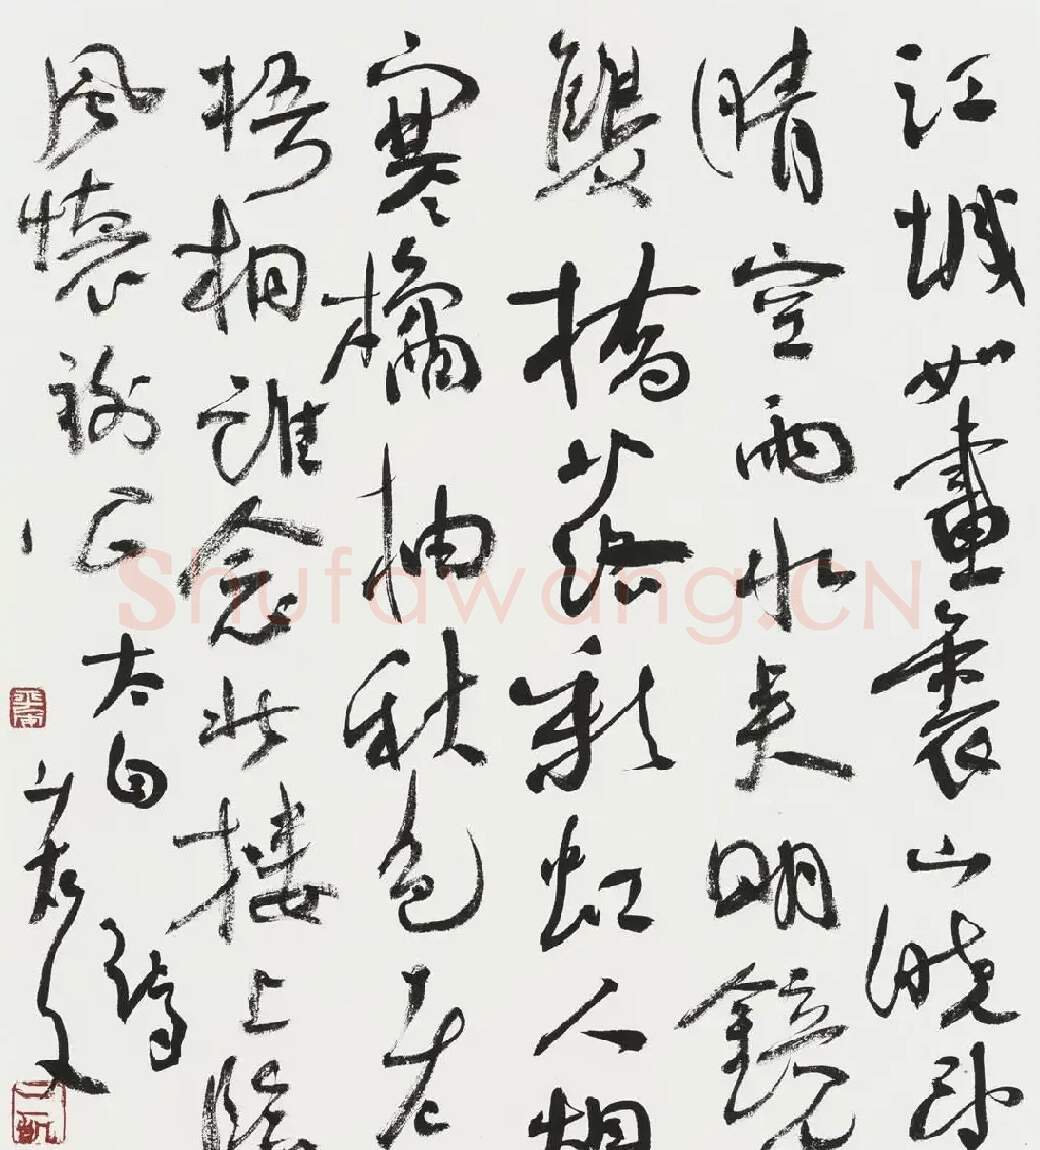 江城如畫裏山曉望
晴空兩水夾明鏡
雙橋落彩虹人烟
寒橘柚秋色老
梧桐誰念北樓上臨
風懷謝公太白詩
Shufawang.CN